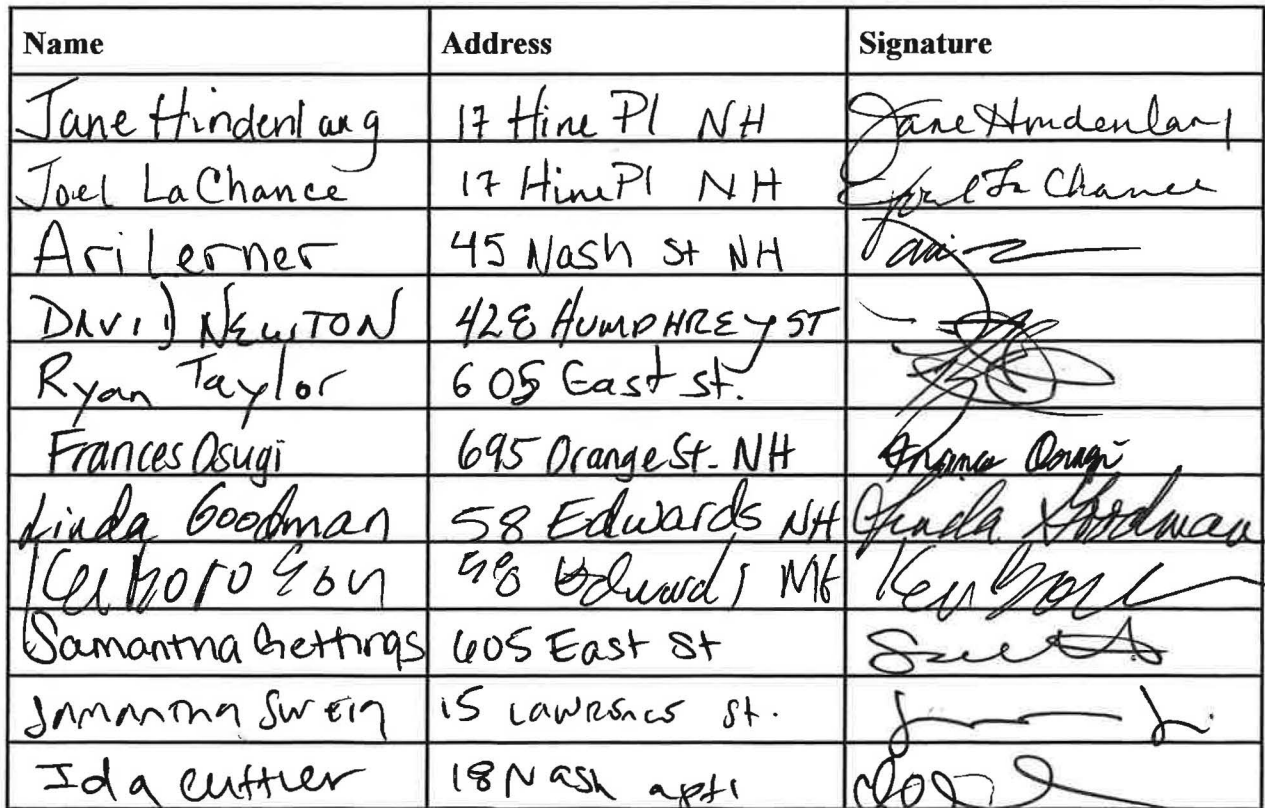 Name Address Signature
Jane Hindenlang 17 Hine Pl NH Jane Hindenlang
Joel LaChance 17 Hine Pl NH Joel La Chance
Ari Lerner 45 Nash St NH Ari
DAVID NEWTON 428 HUMPHREY ST
Ryan Taylor 605 East St.
Frances Osugi 695 Orange St. NH Frances Osugi
Linda Goodman 58 Edwards NH Linda Goodman
Ken 58 Edwards Ken
Samantha Gettings 605 East St
Samantha Swein 15 LAWRENCE St.
Ida cuttler 18 Nash apt1